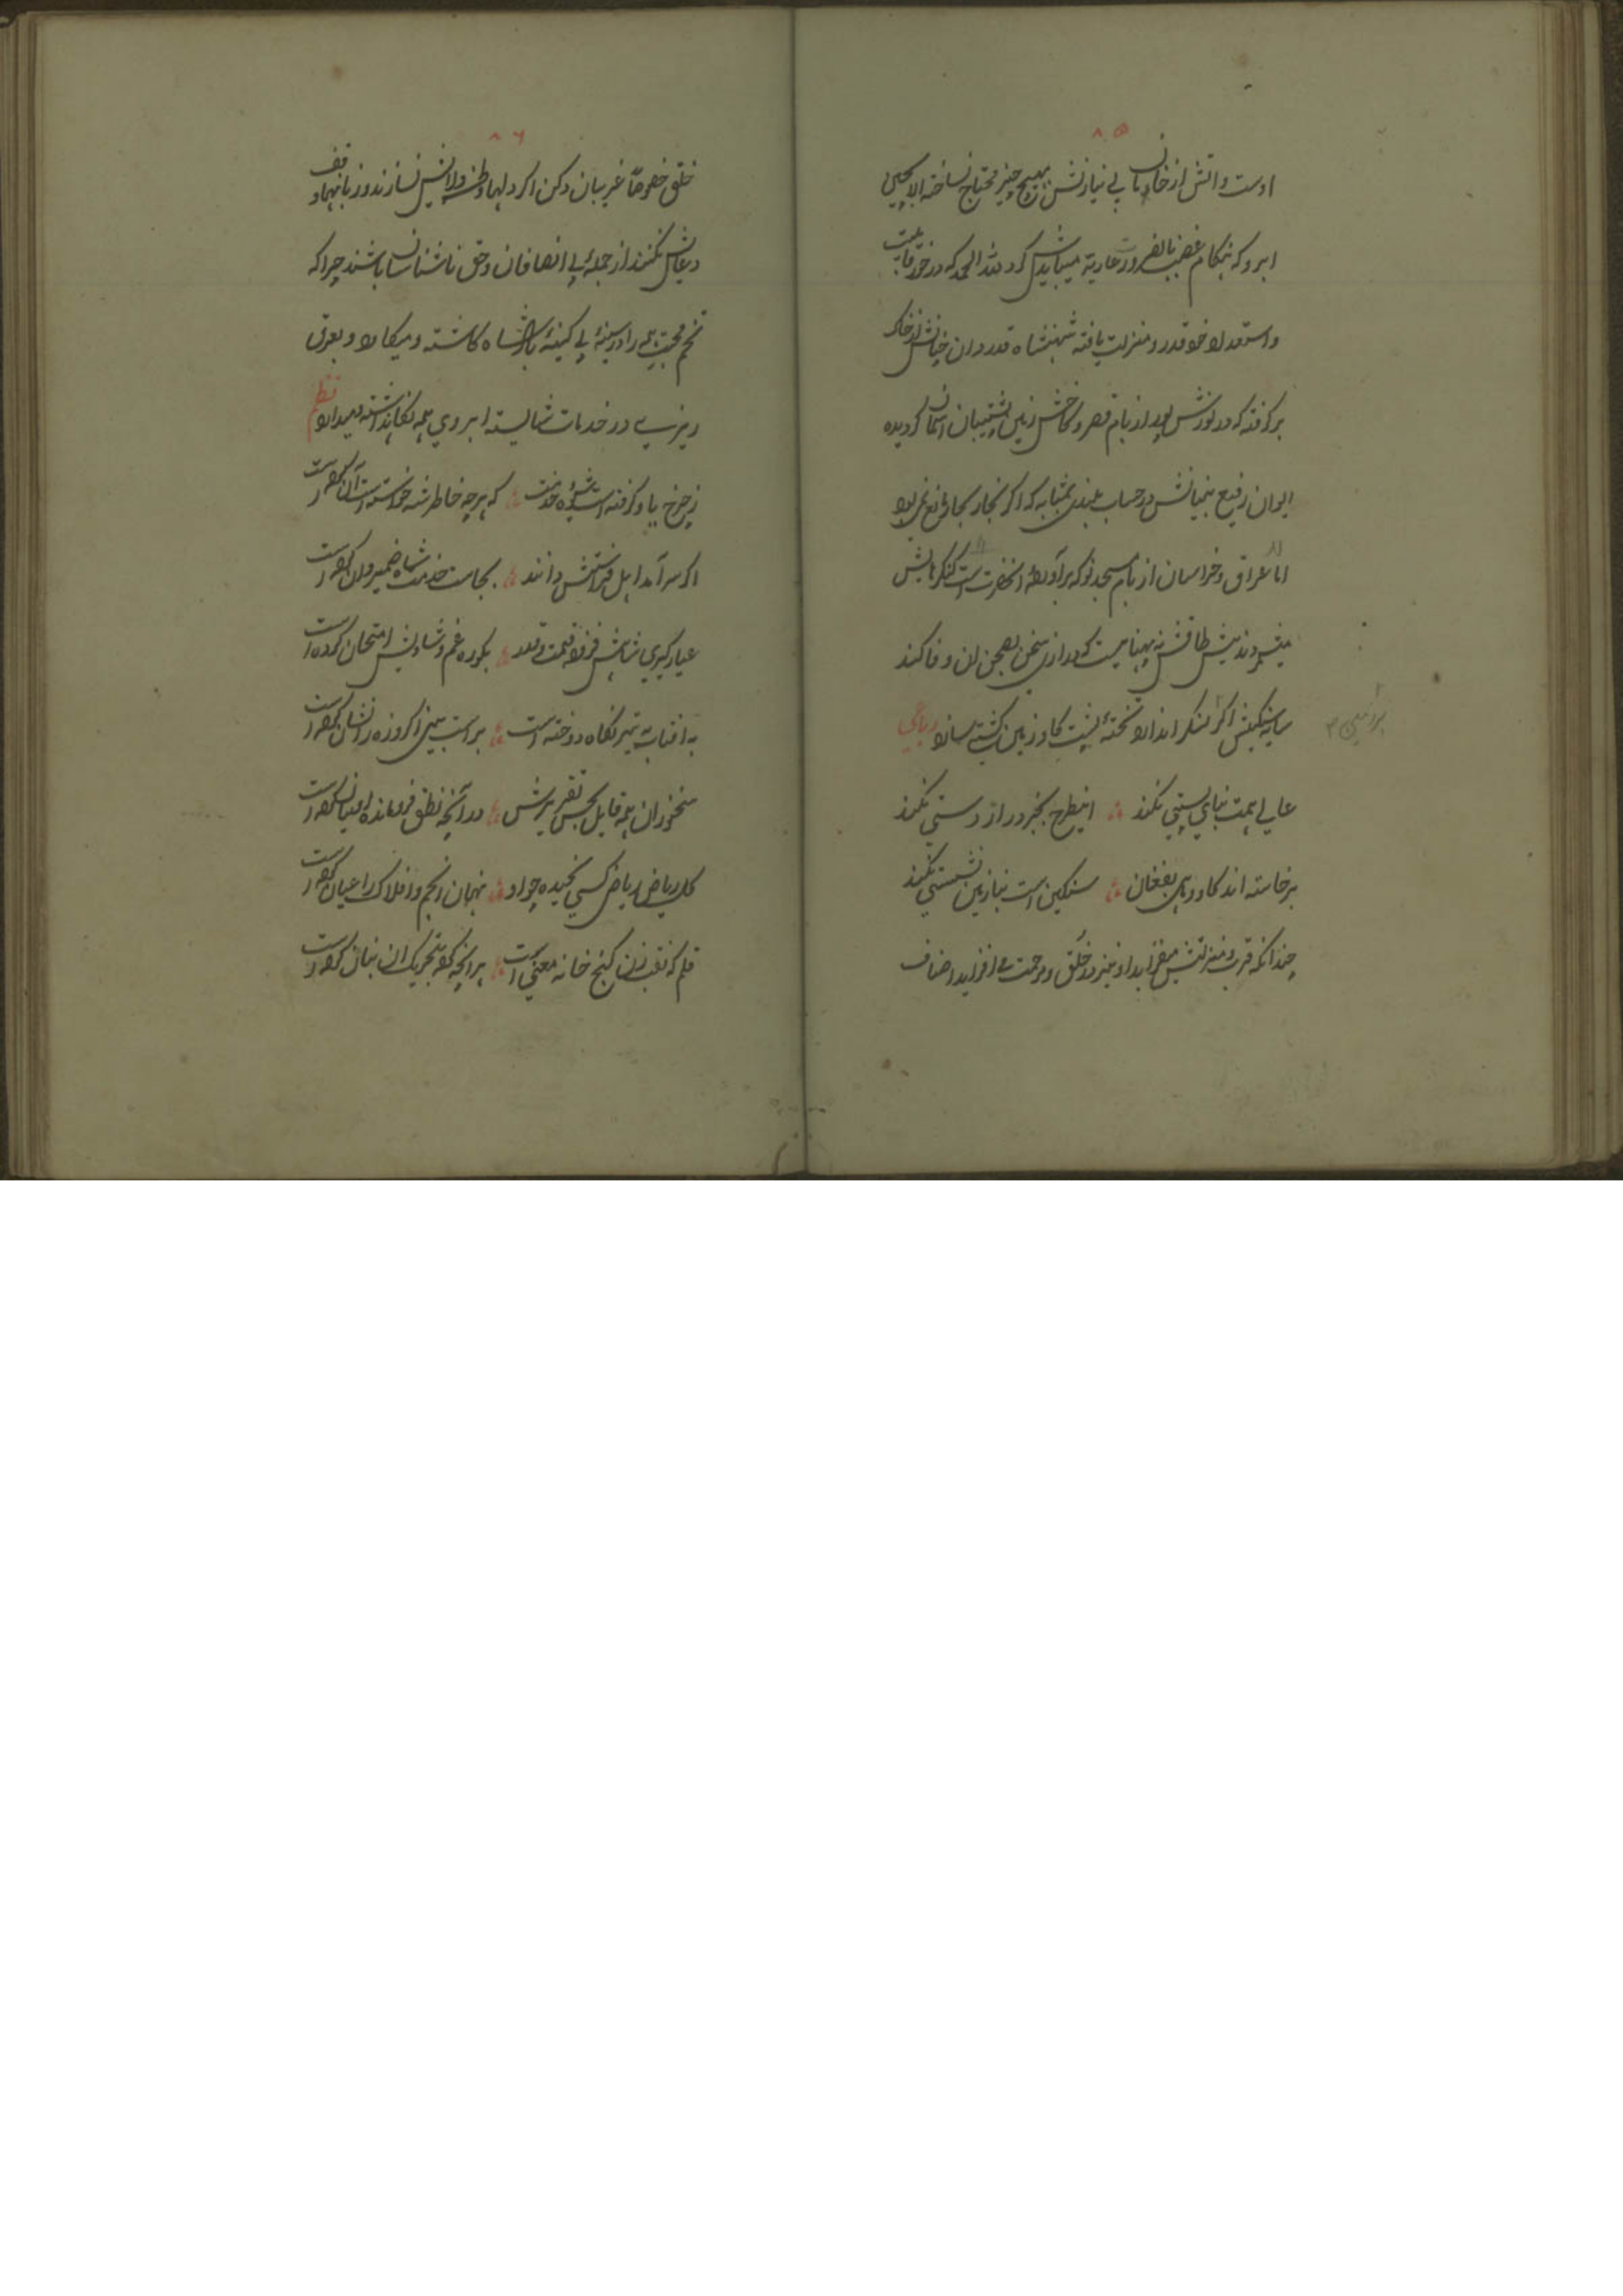 ۸۵
اوست و آتش از خانها بی نیازش بهیچ چیز محتاج نساخته الا بچین
ابرو که بهنگام غضب بالضرورت عاریه میبایدش کرد لله الحمد که در خور قابلیت
و استعداد خود قدر و منزلت یافته شهنشاه قدردان چنانش از خاک
برگرفته که در نورش بود از بام قصر و کاخش زمین پشتیبان آسمان گردیده
ایوان رفیع بنیانش در حساب بلندی بمثابه که اگر بخار بجا مانع نمی بود
اما عراق و خراسان از بام مسجد نو که برآورده آنحضرت است کنگرهایش
میشمردند پیش طاقش نه پهناییست که درازی سخن بصحن آن وفا کند
سایه سنگینش اگر لنگر اندازد تخته پشت گاو زمین کشتی سازد رباعی
عالی همت بنای پستی نکند اینطرح بجز دراز دستی نکند
برخاسته اند گاو و ماهی بفغان سنگین است بنا زمین نشستی نکند
چندانکه قرب و منزلتش میفزاید او نیز در خلق و مرحمت می افزاید اصناف
۸۶
خلق خصوصا غریبان دکن اگر دلها وطن ولایش نسازند و زبانها وقف
دعایش نکنند از جمله بی انصافان و حق ناشناسان باشند چرا که
تخم محبت همه را در سینه بی کینه پادشاه کاشته و میکارد و بعرق
ریزی در خدمات شایسته ابروی همه نگاهداشته و میدارد نظم
ز چرخ یاد گرفته است شیوه خدمت که هر چه خاطر شه خواسته است آن کرده است
اگر سر آمد اهل فراستش دانند بجاست خدمت شاه ضمیردان کرده است
عیار گیری شاهش فزود قیمت و قدر بکوره غم و شادیش امتحان کرده است
به آفتاب به تیر نگاه دوخته است براست بینی اگر وزه را نشان کرده است
سخنوران همه قایل بحسن تقریرش در آنچه نطق فرومانده او بیان کرده است
گل ریاض ریاضی کسی نچیده چو او نهان انجم و افلاک را عیان کرده است
قلم که نقب زن گنج خانه معنی است هر آنچه کرد بتحریک آن بنان کرده است